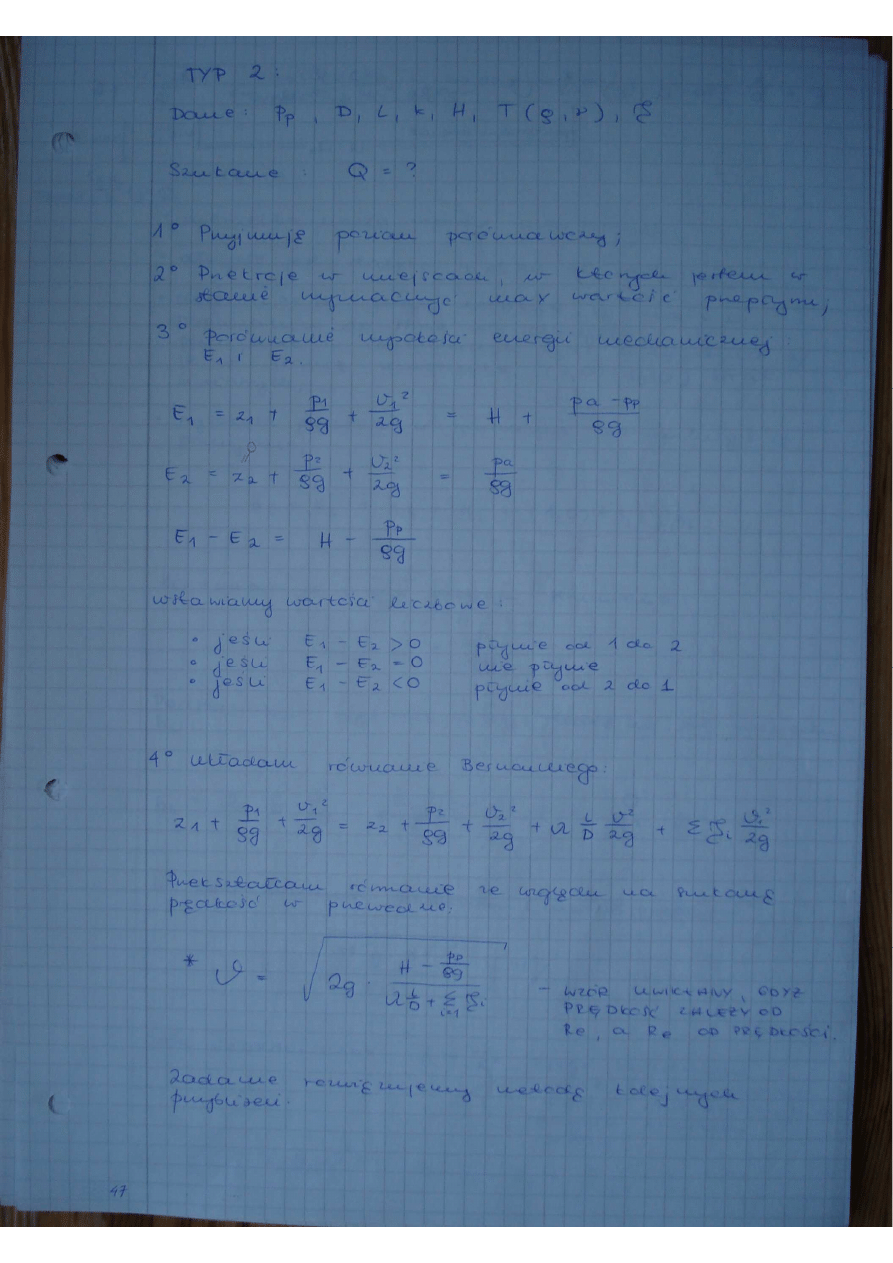 TYP 2:
Dane: Pp, D, L, k, H, T (ρ, ν), ξ
Szukane: Q = ?
1° Przyjmuję poziom porównawczy;
2° Przekroje w miejscach, w których jestem w
stanie wyznaczyć max wartość przepływu;
3° porównanie wysokości energii mechanicznej
E1 i E2.
E1 = z1 + p1/ρg + v1²/2g = H + pa - pp/ρg
E2 = z2 + p2/ρg + v2²/2g = pa/ρg
E1 - E2 = H - pp/ρg
wstawiamy wartości liczbowe:
• jeśli E1 - E2 > 0 płynie od 1 do 2
• jeśli E1 - E2 = 0 nie płynie
• jeśli E1 - E2 < 0 płynie od 2 do 1
4° układam równanie Bernoulliego:
z1 + p1/ρg + v1²/2g = z2 + p2/ρg + v2²/2g + λ L/D v²/2g + Σ ξi vi²/2g
Przekształcam równanie ze względu na szukaną
prędkość w przewodzie:
* v = √(2g · (H - pp/ρg)/(λ L/D + Σ i=1 ξi)) - WZÓR UWIKŁANY, GDYŻ
PRĘDKOŚĆ ZALEŻY OD
Re, a Re OD PRĘDKOŚCI.
Zadanie rozwiązujemy metodą kolejnych
przybliżeń.
47